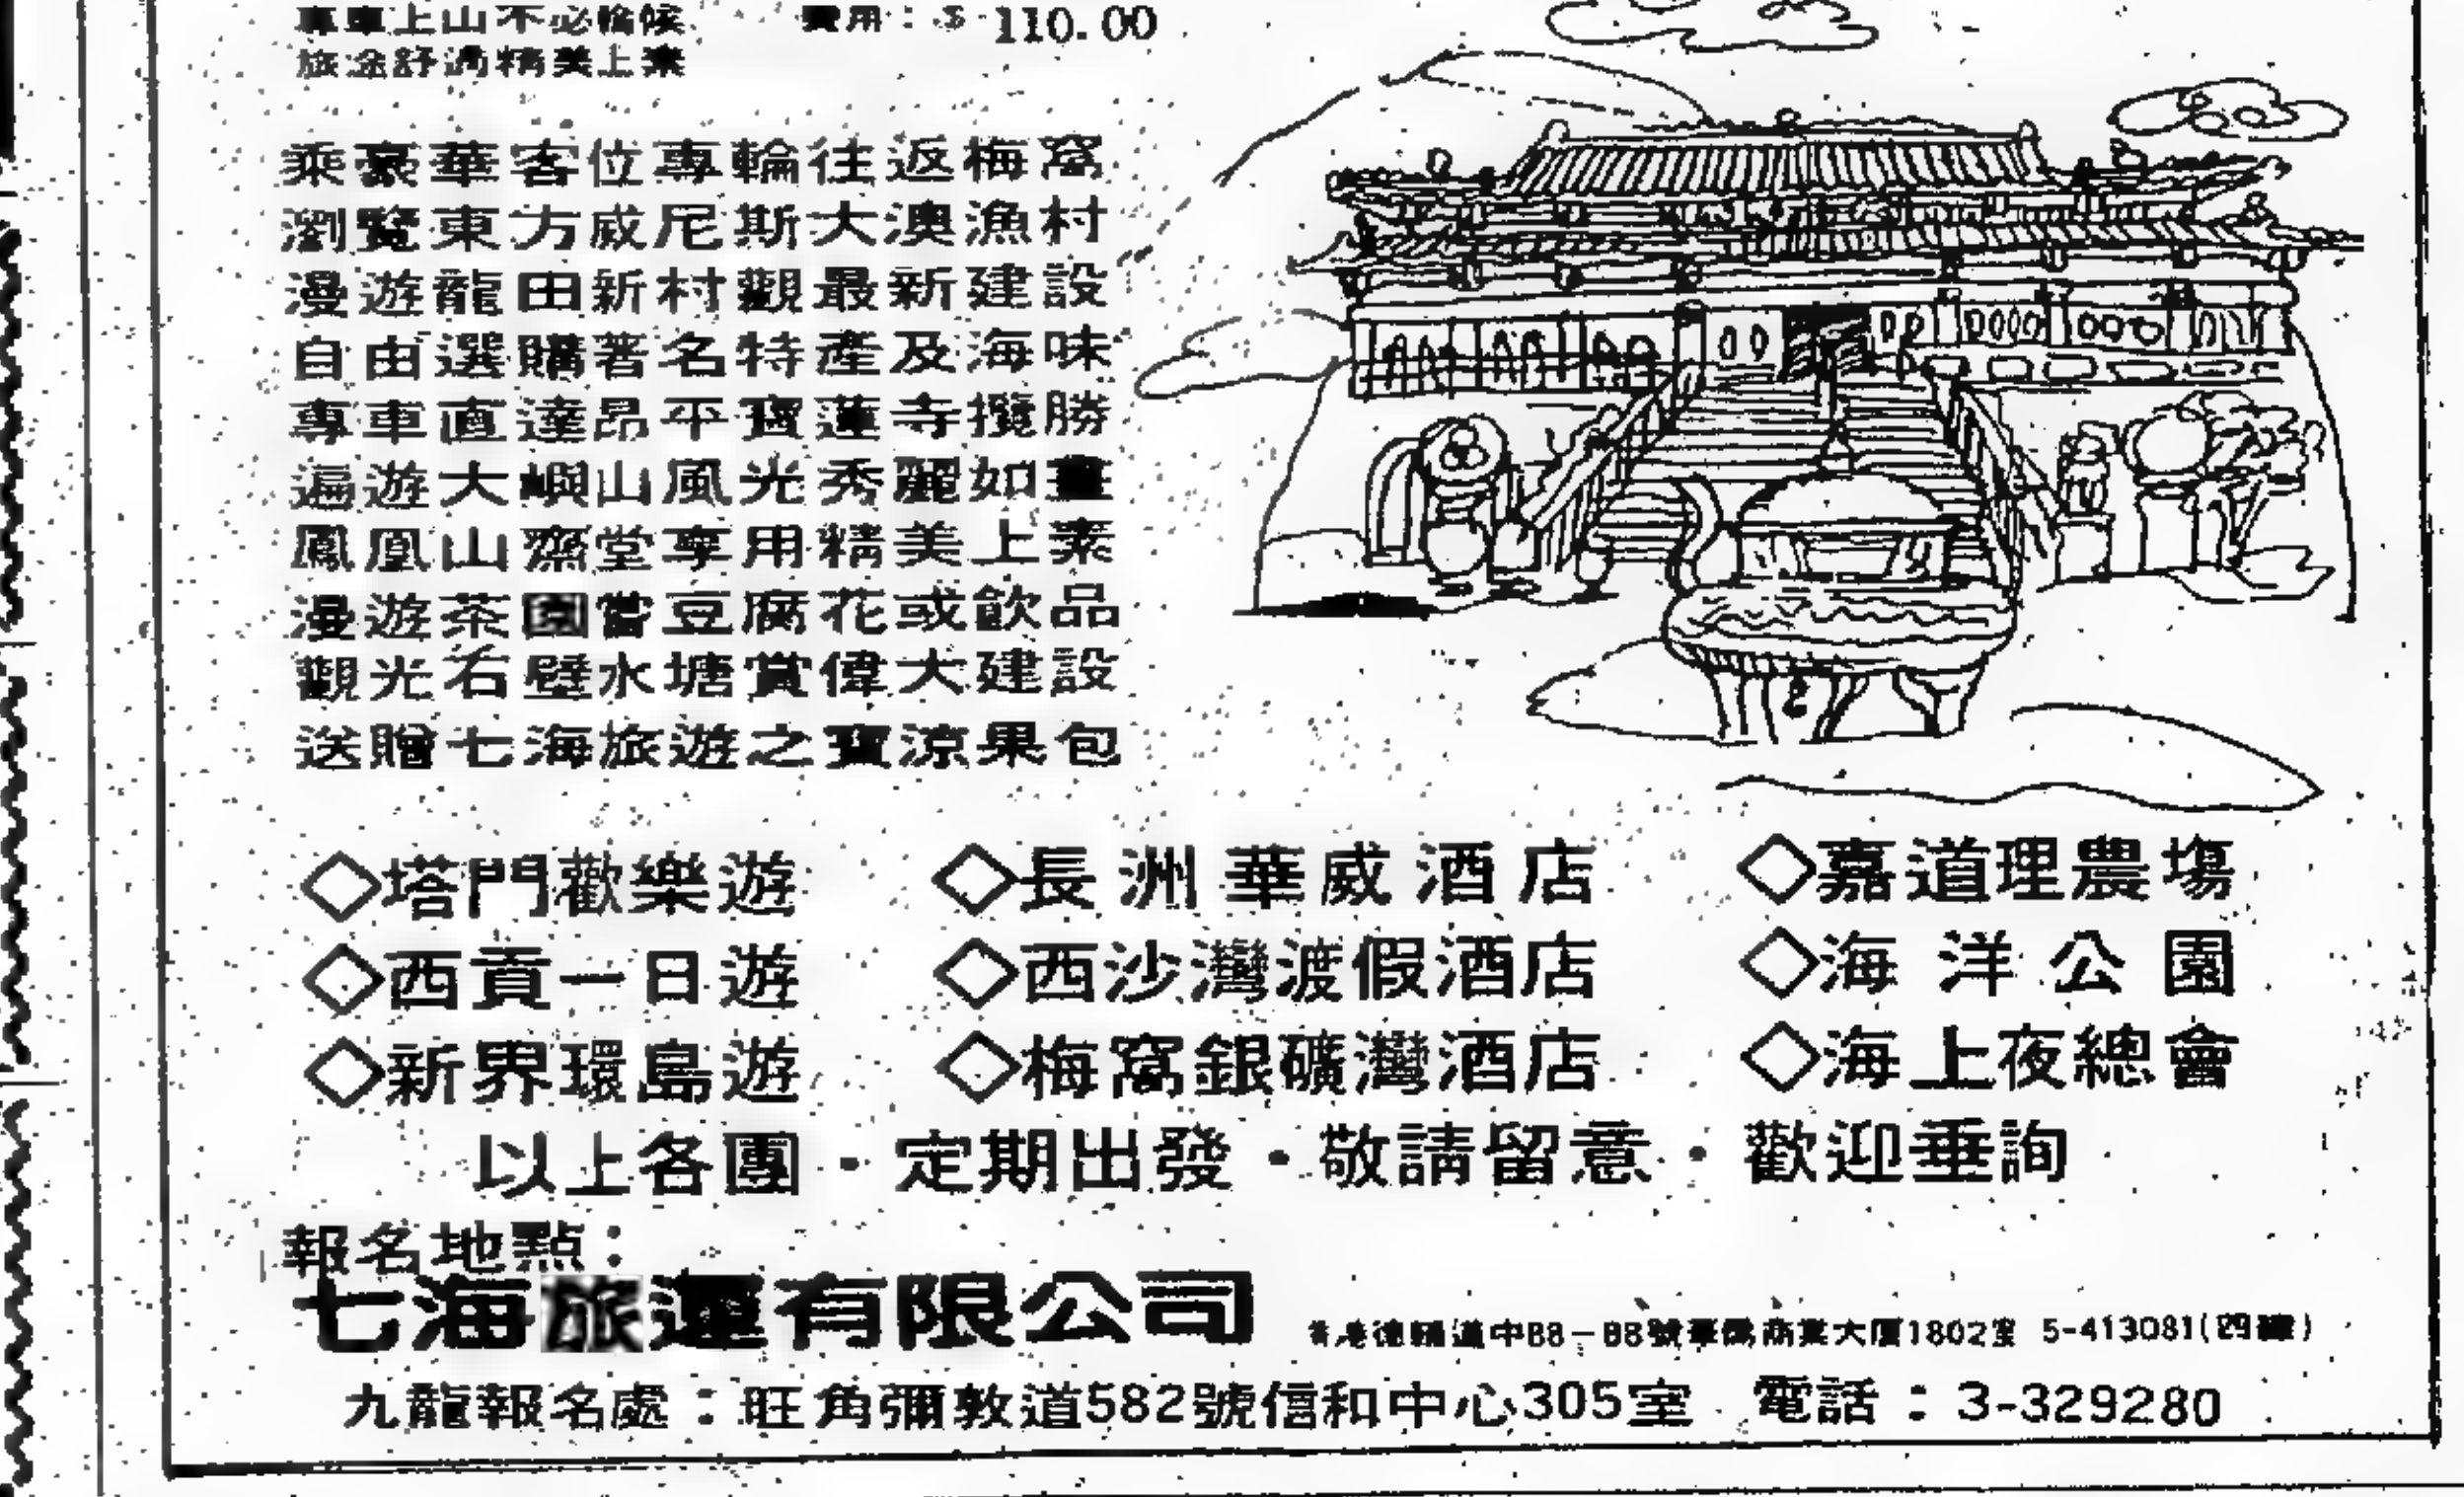 專車上山不必輪候 費用：$ 110.00
旅途舒適精美上素
乘豪華客位專輪往返梅窩
瀏覽東方威尼斯大澳漁村
漫遊龍田新村觀最新建設
自由選購著名特產及海味
專車直達昂平寶蓮寺攬勝
遍遊大嶼山風光秀麗如畫
鳳凰山齋堂享用精美上素
漫遊茶園嘗豆腐花或飲品
觀光石壁水塘賞偉大建設
送贈七海旅遊之寶涼果包
◇塔門歡樂遊 ◇長洲華威酒店 ◇嘉道理農場
◇西貢一日遊 ◇西沙灣渡假酒店 ◇海洋公園
◇新界環島遊 ◇梅窩銀礦灣酒店 ◇海上夜總會
以上各團・定期出發・敬請留意・歡迎垂詢
報名地點：
七海旅運有限公司 香港德輔道中號華僑商業大厦1802室 5-413081(四線)
九龍報名處：旺角彌敦道582號信和中心305室 電話：3-329280